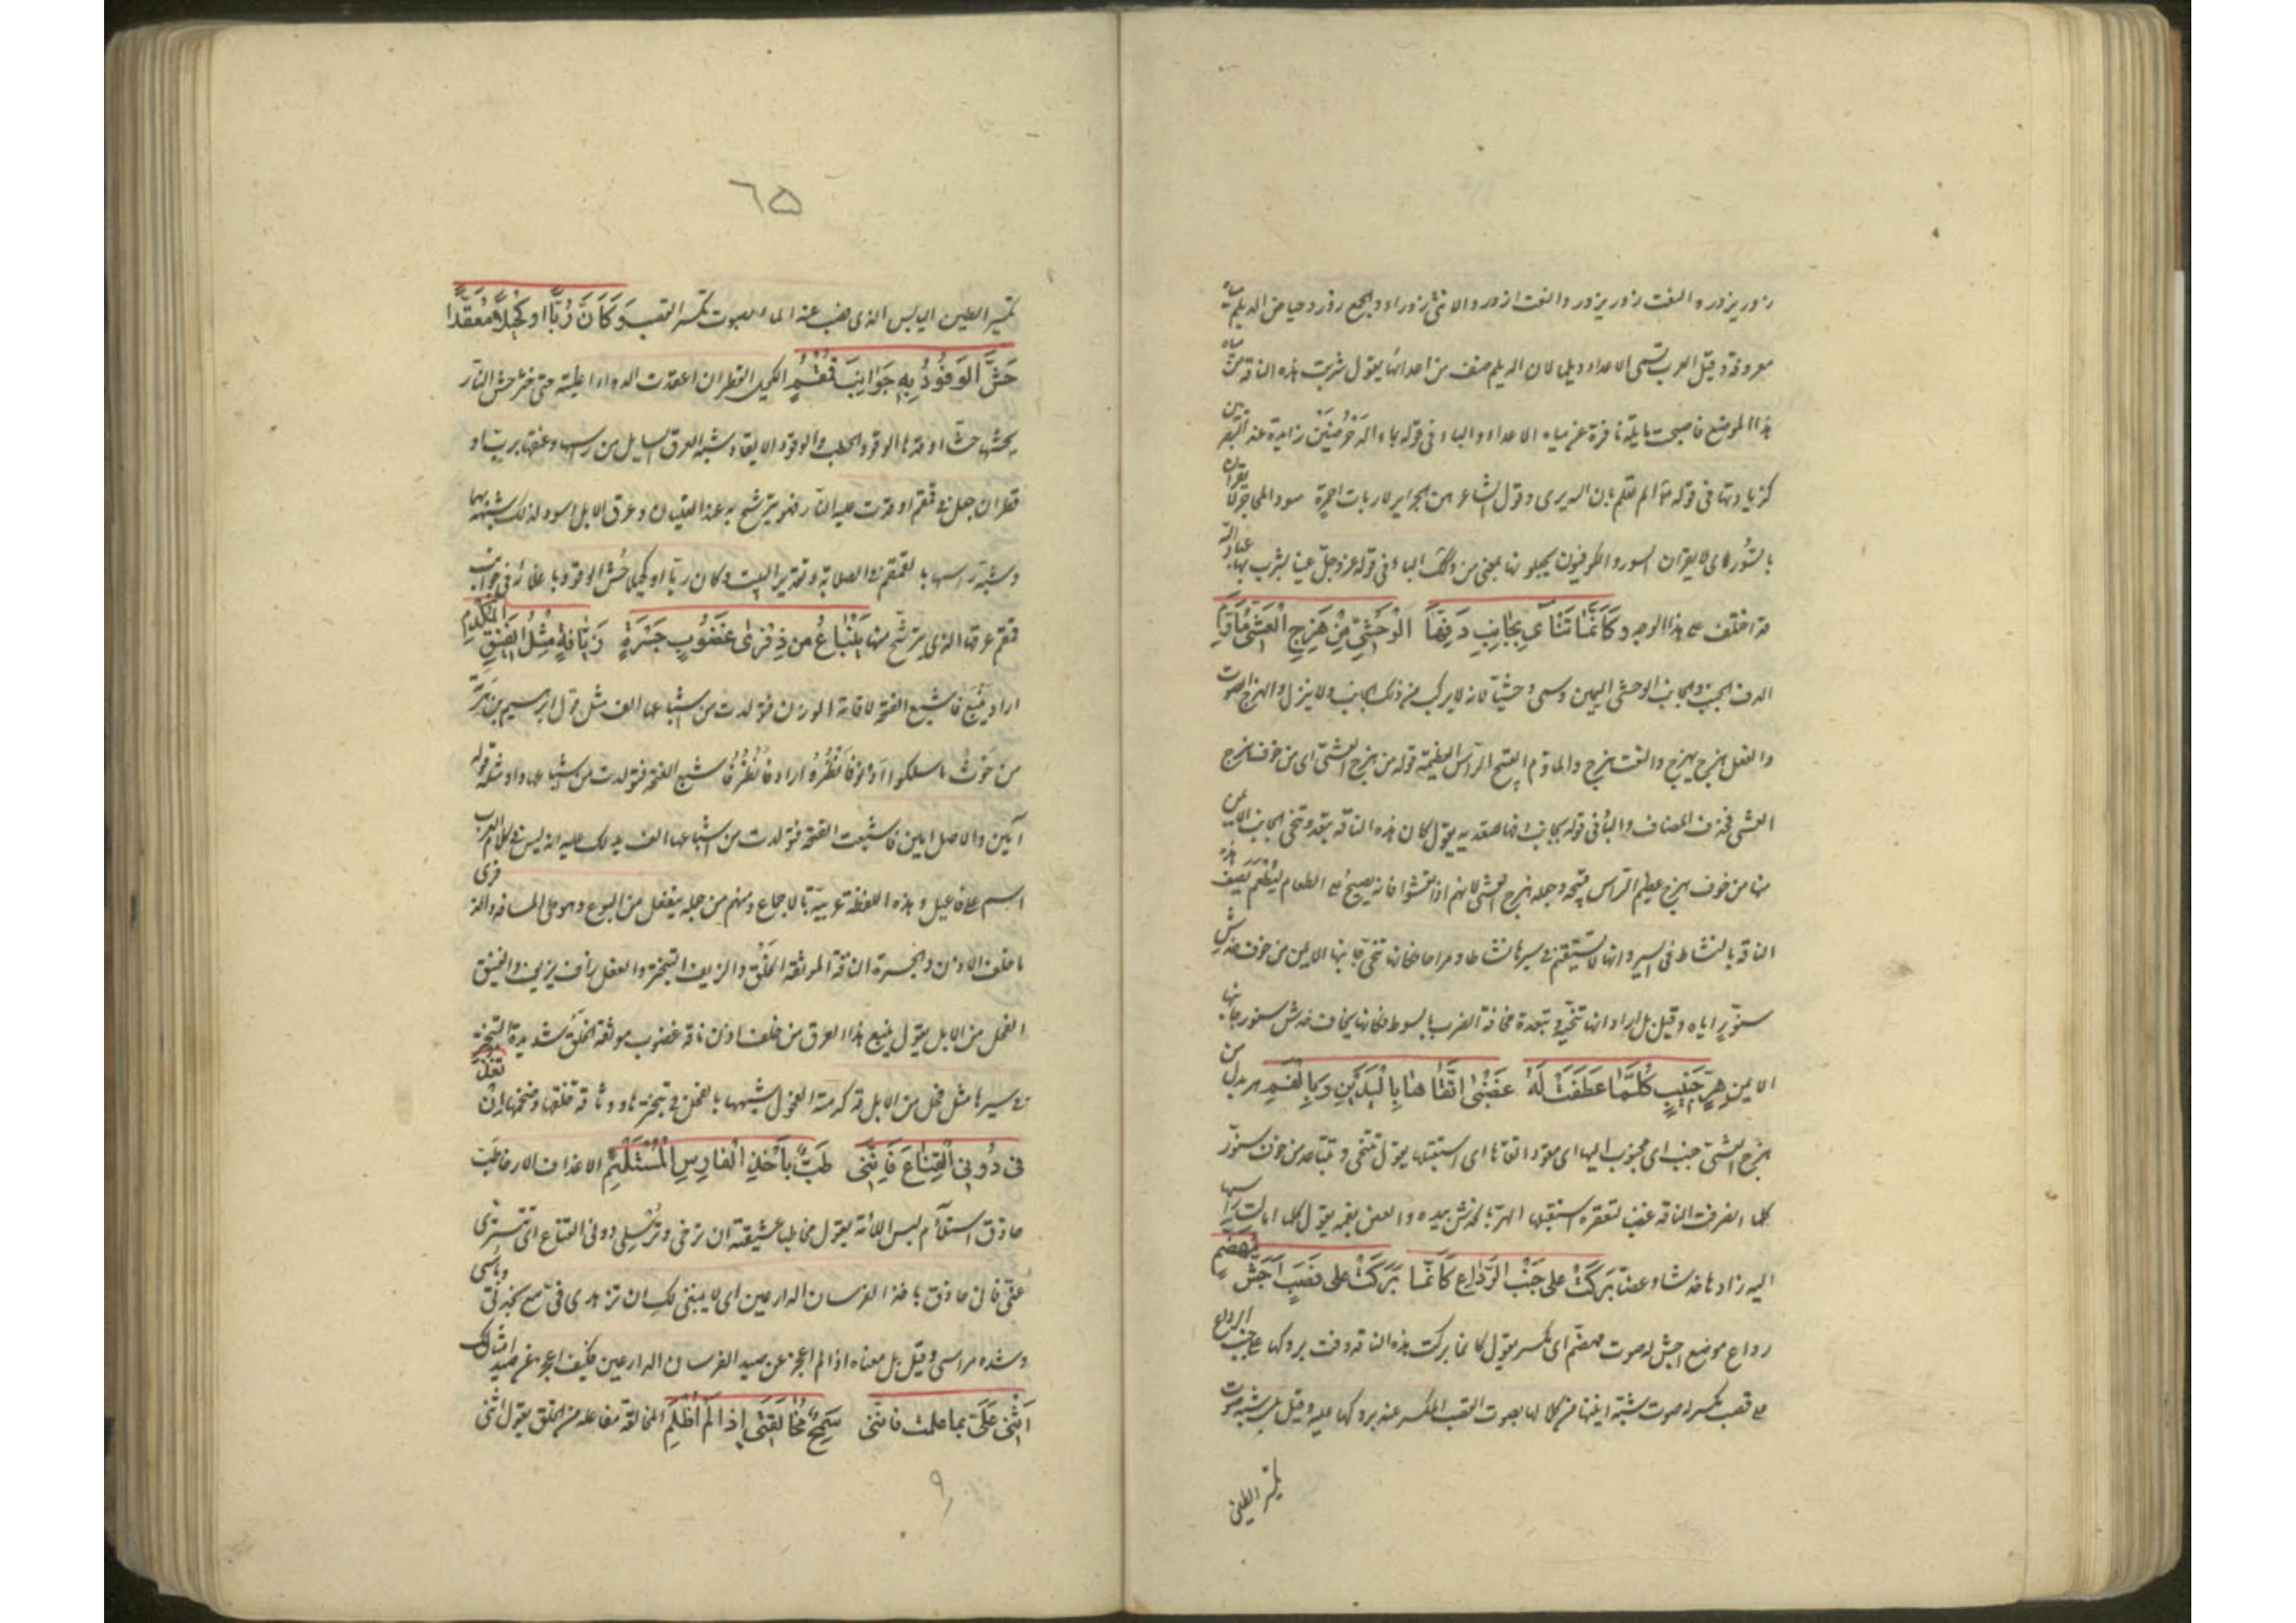 زور يزور والنعت زور يزور والنعت ازور والانثى زوراء والجمع زور وحياض الديلم مياه
معروفة وقيل العرب تسمى الاعداء ديلما لان الديلم صنف من اعدائها يقول شربت هذه الناقة من مياه
هذا الموضع فاصبحت مايلة نافرة عن مياه الاعداء والباء فى قوله بماء الدحرضين زايدة عند البصريين
كزيادتها فى قوله تع الم تعلم بان الله يرى وقول الشاعر هن الحراير لا ربات احمرة سود المحاجر لا يقران
بالسور اى لا يقران السور والكوفيون يجعلونها بمعنى من وكذلك الباء فى قوله عز وجل عينا يشرب بها عباد الله
قد اختلف على هذا الوجه وَكَأَنَّمَا تَنْأَى بِجَانِبِ دَفِّهَا الْوَحْشِيِّ مِنْ هَزِجِ الْعَشِيِّ مُأَوَّمِ
الدف الجنب والجانب الوحشى اليمين وسمى وحشيا لانه لا يركب من ذلك الجانب ولا ينزل والهزج الصوت
والفعل هزج يهزج والنعت هزج والمأوم القبيح الرأس العظيمة قوله من هزج العشى اى من خوف هزج
العشى فحذف المضاف والباء فى قوله بجانب دفها للتعدية يقول كان هذه الناقة تبعد وتنحى الجانب الايمن
منها من خوف هزج عظيم الرأس قبيحه وجعله هزج العشى لانهم اذا تعشوا فانه يصيح على الطعام ليطعم يصف هذه
الناقة بالنشاط فى السير وانها لا تستقيم فى سيرها نشاطا ومراحا فكانها تنحى جانبها الايمن من خوف خدش
سنّور اياه وقيل بل اراد انها تنحيه وتبعده مخافة الضرب بالسوط فكانها يخاف خدش سنور جانبها
الايمن هِرٍّ جَنِيبٍ كُلَّمَا عَطَفَتْ لَهُ غَضْبَى اتَّقَاهَا بِالْيَدَيْنِ وَبِالْفَمِ هر بدل من
هزج العشى جنيب اى مجنوب اليها اى مقود اتقاها اى استقبلها يقول تتنحى وتتباعد من خوف سنور
كلما انصرفت الناقة غضبى لتعقره استقبلها الهر بالخدش بيده والعض بفمه يقول كلما امالت راسها
اليه زادها خدشا وعضا بَرَكَتْ عَلَى جَنْبِ الرِّدَاعِ كَأَنَّمَا بَرَكَتْ عَلَى قَصَبٍ أَجَشَّ مُهَضَّمِ
رداع موضع اجش له صوت مهضم اى مكسر يقول كانما بركت هذه الناقة وقت بروكها على جنب الرداع
على قصب مكسر له صوت شبه انينها من كلالها بصوت القصب المكسر عند بروكها عليه وقيل بل شبه صوت
تكسر الطين
٦٥
تكسر الطين اليابس الذى نضب عنه الماء بصوت تكسر القصب وَكَأَنَّ رُبًّا أَوْ كُحَيْلًا مُعْقَدًا
حَشَّ الْوَقُودُ بِهِ جَوَانِبَ قُمْقُمِ الكحيل القطران اعقدت الدواء اغليته حتى خثر حش النار
يحشها حشا اوقدها الوقود الحطب والوقود الايقاد شبه العرق السايل من راسها وعنقها بربّ او
قطران جعل فى قمقم اوقدت عليه النار فهو يترشح به عند الغليان وعرق الابل اسود لذلك شبهه بهما
وشبه راسها بالقمقم فى الصلابة وتقدير البيت وكان ربا او كحيلا حش الوقود باغلائه فى جوانب
قمقم عرقها الذى يترشح منها يَنْبَاعُ مِنْ ذِفْرَى غَضُوبٍ جَسْرَةٍ زَيَّافَةٍ مِثْلِ الْفَنِيقِ الْمُكْدَمِ
اراد ينبع فاشبع الفتحة لاقامة الوزن فتولدت من اشباعها الف مثل قول ابراهيم بن هرمة
من حوث ما سلكوا ادنو فانظور اراد فانظر فاشبع الضمة فتولدت من اشباعها واو مثله قوله
آمين والاصل امين فاشبعت الفتحة فتولدت من اشباعها الف يدلك عليه انه ليس فى كلام العرب
اسم على فاعيل وهذه اللفظة عربية بالاجماع ومنهم من جعله ينفعل من البوع وهو طى المسافة والذفرى
ما خلف الاذن والجسرة الناقة الموثقة الخلق والزيف التبختر والفعل زاف يزيف والفنيق
الفحل من الابل يقول ينبع هذا العرق من خلف اذن ناقة غضوب موثقة الخلق شديدة التبختر
فى سيرها مثل فحل من الابل قد كدمته الفحول شبهها بالفحل فى تبخترها ووثاقة خلقها وضخمها إِنْ تُغْدِفِي
فى دُونِي الْقِنَاعَ فَإِنَّنِي طَبٌّ بِأَخْذِ الْفَارِسِ الْمُسْتَلْئِمِ الاغداف الارخاء طبّ
حاذق استلأم لبس اللأمة يقول مخاطبا عشيقته ان ترخى وترسلى دونى القناع اى تتسترى
عنى فانى حاذق باخذ الفرسان الدارعين اى لا ينبغى لك ان تزهدى فى مع نجدتى وباسى
وشدة مراسى وقيل بل معناه اذا لم اعجز عن صيد الفرسان الدارعين فكيف اعجز عن صيد امثالك
أَثْنِي عَلَيَّ بما علمت فاننى سَمْحٌ مُخَالَقَتِي إِذَا لَمْ أُظْلَمِ المخالقة مفاعلة من الخلق يقول اثنى
٩